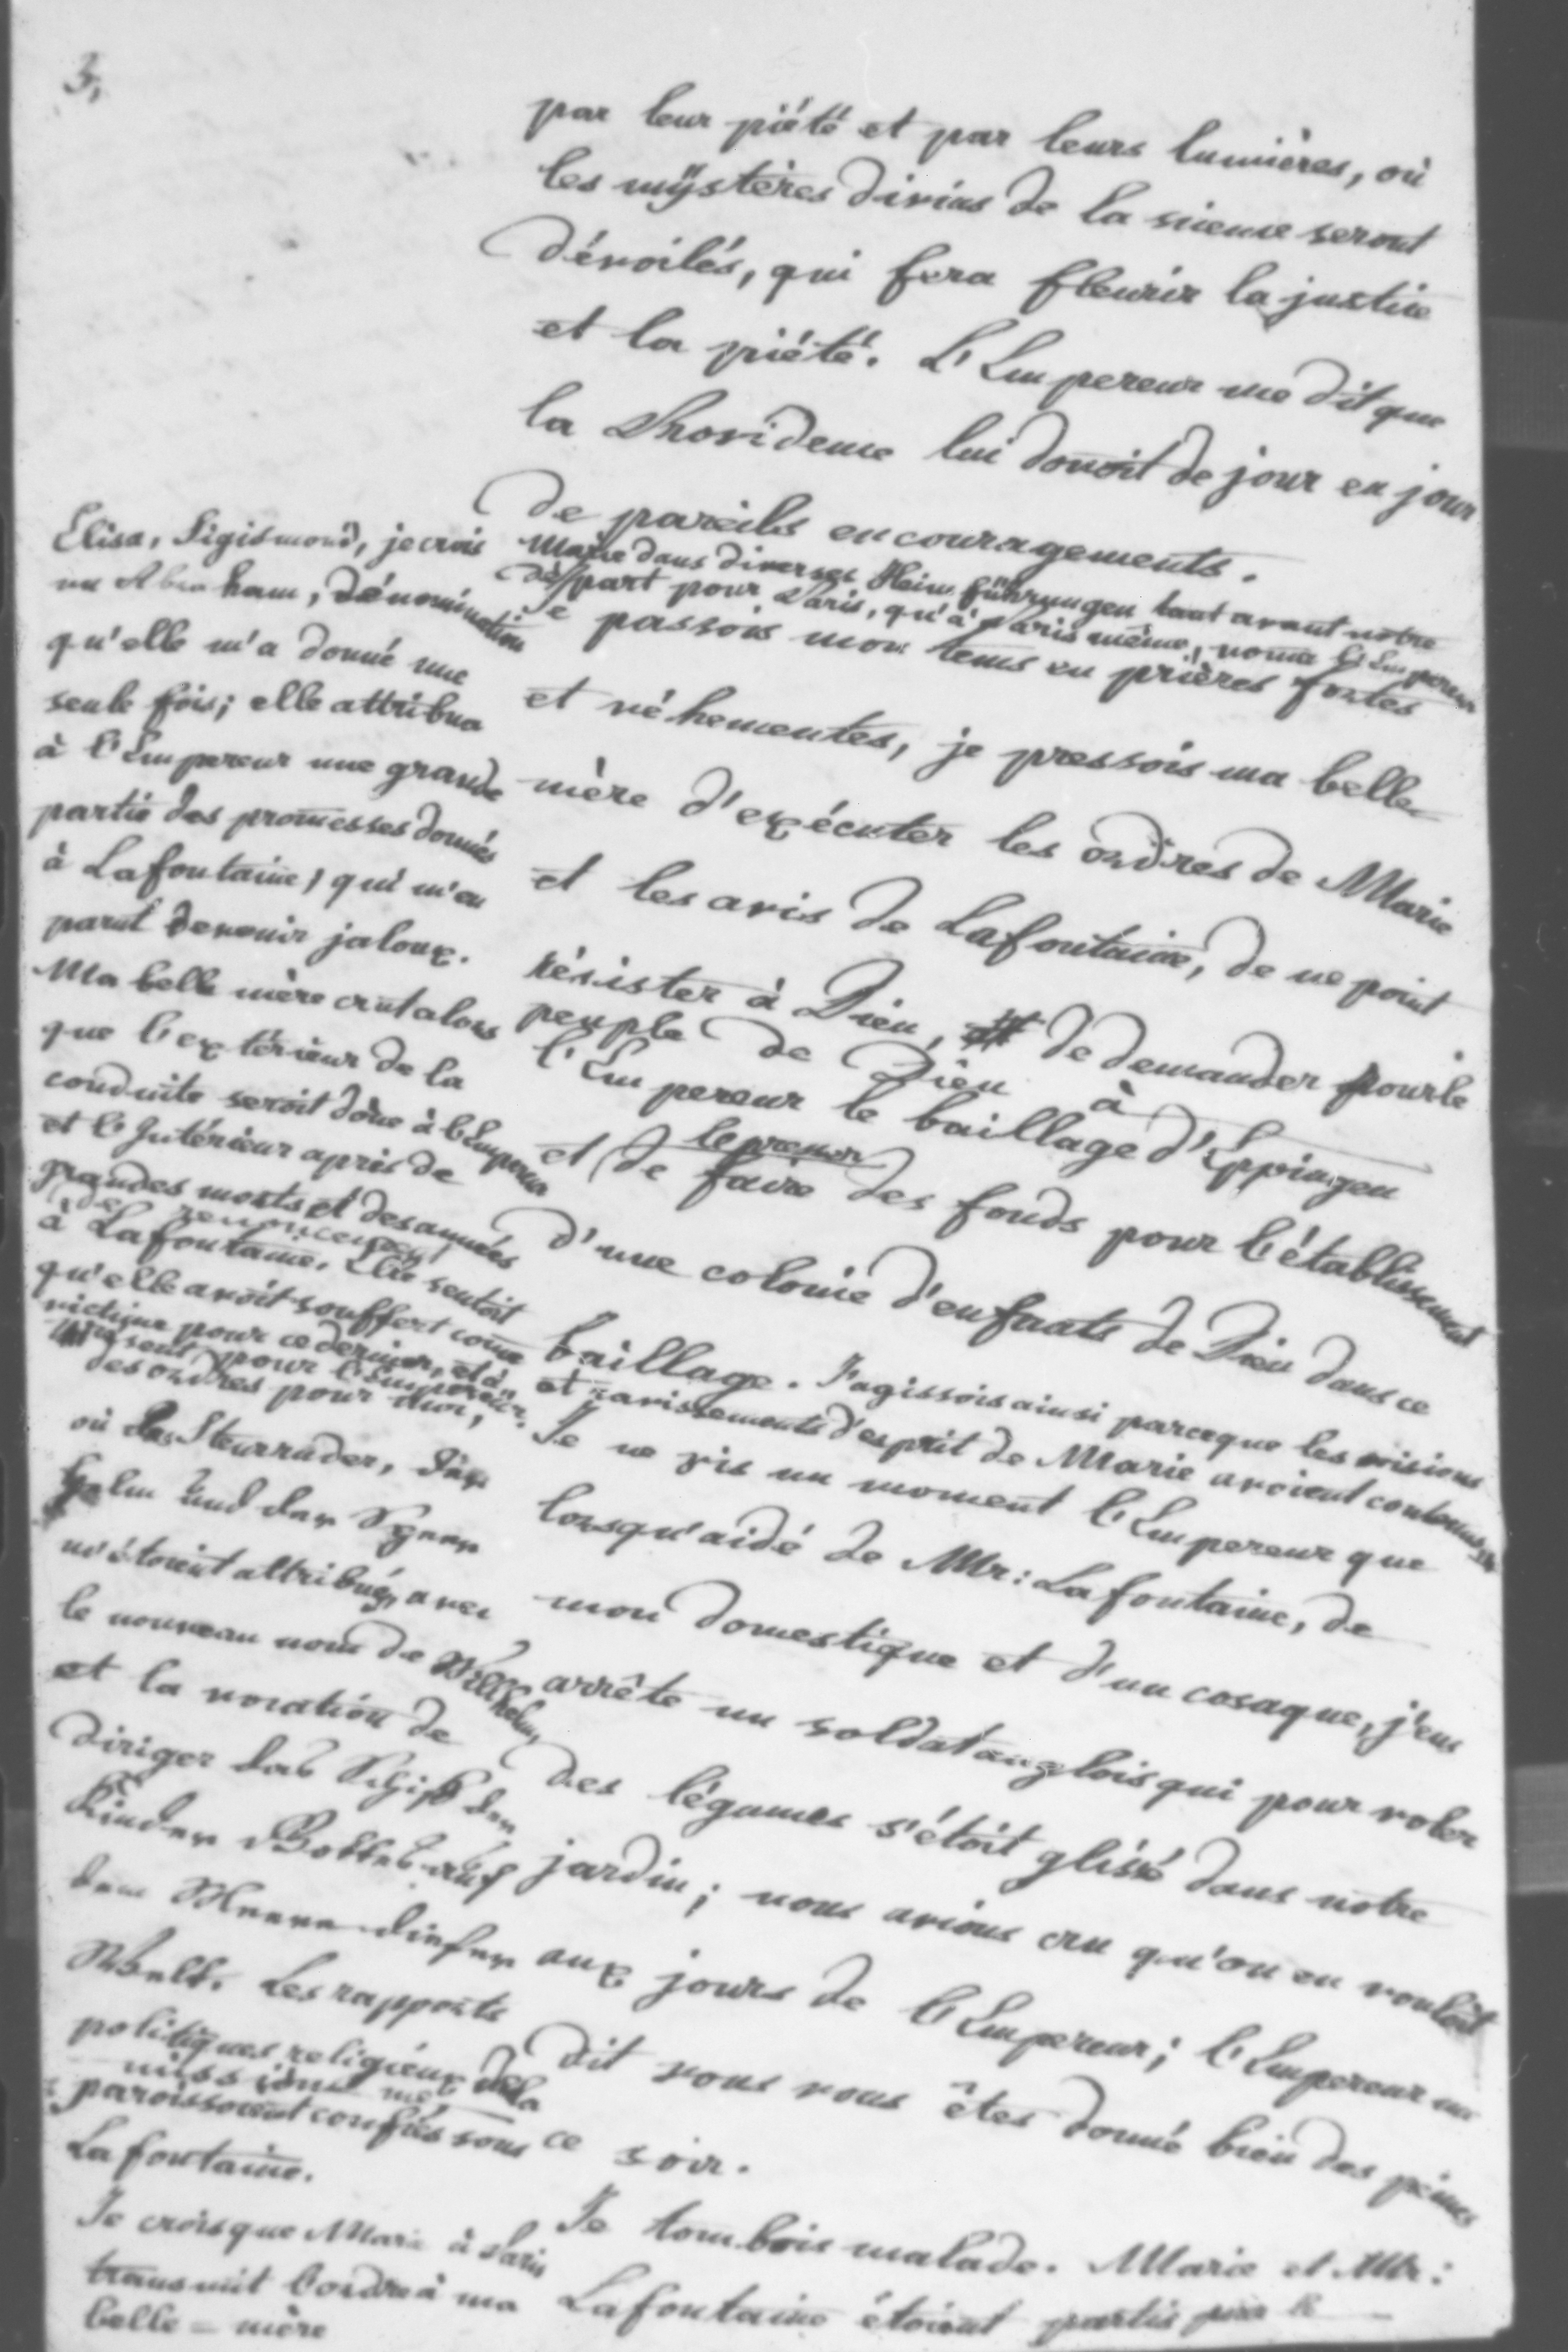 3,
par leur piété et par leurs lumières, où
les mÿstères divins de la sienne seront
dévoilés, qui fera fleurir la justice
et la piété. L'Empereur me dit que
la Providence lui donoit de jour en jour
de pareils encouragements.
Marie dans diverses Heimführungen tant avant notre
départ pour Paris, qu'à Paris même, nome l'Empereur
Elisa, Sigismond, je crois
un Abraham, dénomination
qu'elle m'a donné une
seule fois; elle attribua
à l'Empereur une grande
partie des promesses donnés
à Lafontaine, qui m'en
parut devenir jaloux.
Ma belle mère crut alors
que l'extérieur de la
conduite seroit done à l'Empereur
et l'Intérieur après de
grandes morts et des années
de renoncement
à Lafontaine. Elle sentoit
qu'elle avoit souffert come
victime pour ce dernier, et à
présent pour l'Empereur.
Je passois mon tems en prières fortes
et véhementes, je pressois ma belle
mère d'exécuter les ordres de Marie
et les avis de Lafontaine, de ne point
résister à Dieu, de demander pour le
peuple de Dieu à
l'Empereur le baillage d'Eppingen
et de faire des fonds pour l'établissement
d'une colonie d'enfants de Dieu dans ce
baillage. J'agissois ainsi parceque les visions
et ravissements d'esprit de Marie avoient contenus
des ordres pour moi,
où das Steuerruder, der
Helm und der Speer
m'étoient attribués, avec
le nouveau nom de Wilhelm,
et la vocation de
diriger das Schiff der
Kinder Gottes auf
dem Meere dieser
Welt. Les rapports
politiques religieux de la
missions me
paroissoient confiés sous
Lafontaine.
Je crois que Marie à Paris
transmit l'ordre à ma
belle-mère
Je ne vis un moment l'Empereur que
lorsqu'aidé de Mr: Lafontaine, de
mon domestique et d'un cosaque, j'eus
arrêté un soldat anglois qui pour voler
des légumes s'étoit glissé dans notre
jardin; nous avions cru qu'on en vouloit
aux jours de l'Empereur; l'Empereur me
dit vous vous êtes donné bien des peines
ce soir.
Je tombois malade. Marie et Mr:
Lafontaine étoient partis pour le